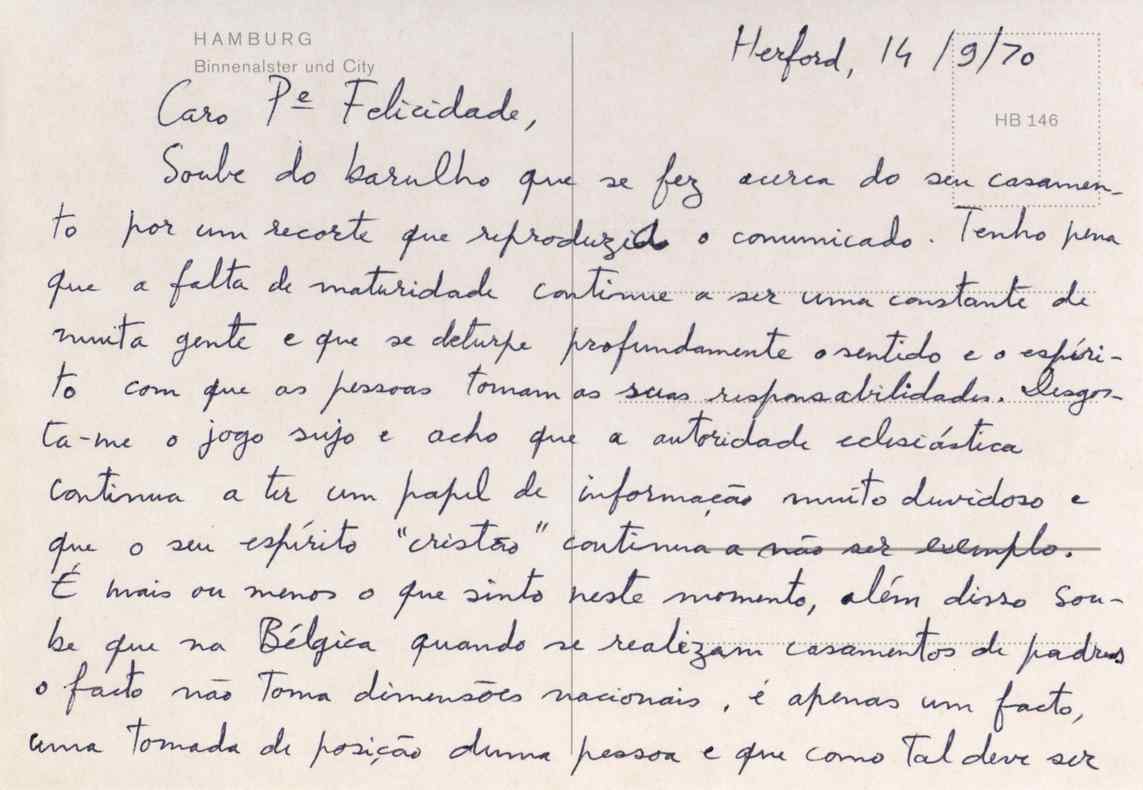 HAMBURG
Binnenalster und City
HB 146
Herford, 14/9/70
Caro Pe Felicidade,
Soube do barulho que se fez acerca do seu casamen-
to por um recorte que reproduzia o comunicado. Tenho pena
que a falta de maturidade continue a ser uma constante de
muita gente e que se deturpe profundamente o sentido e o espíri-
to com que as pessoas tomam as suas responsabilidades. Desgos-
ta-me o jogo sujo e acho que a autoridade eclesiástica
continua a ter um papel de informação muito duvidoso e
que o seu espírito "cristão" continua a não ser exemplo.
É mais ou menos o que sinto neste momento, além disso sou-
be que na Bélgica quando se realizam casamentos de padres
o facto não toma dimensões nacionais, é apenas um facto,
uma tomada de posição duma pessoa e que como tal deve ser